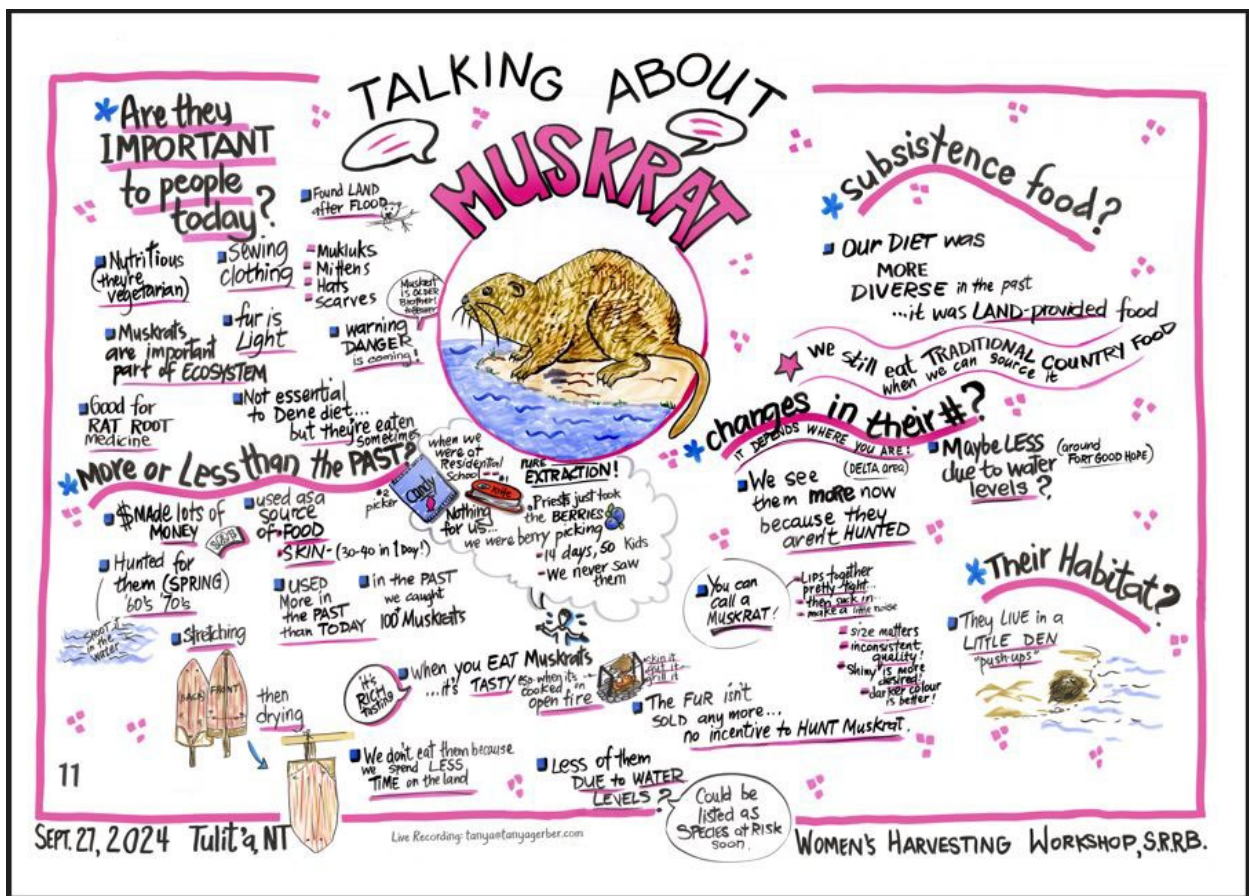 TALKING ABOUT
MUSKRAT
* Are they
IMPORTANT
to people
today?
Found LAND
after FLOOD
Nutritious
(they're
vegetarian)
Sewing
clothing
- Mukluks
- Mittens
- Hats
- Scarves
Muskrats
are important
part of ECOSYSTEM
fur is
Light
warning
DANGER
is coming!
Muskrat
is OLDER
Brother!
Good for
RAT ROOT
medicine
Not essential
to Dene diet...
but they're eaten
sometimes
* More or Less than the PAST?
$MADE lots of
MONEY
used as a
source
of - FOOD
- SKIN - (30-40 in 1 Day!)
Hunted for
them (SPRING)
'60's '70's
shoot it
in the
water
USED
More in
the PAST
than TODAY
in the PAST
we caught
100 Muskrats
Stretching
BACK
FRONT
then
drying
when we
were at
Residential
School
#2
picker
Candy
#1
Knife
Nothing
for us...
PURE
EXTRACTION!
- Priests just took
the BERRIES
we were berry picking
- 14 days, 50 kids
- We never saw
them
it's
RICH
tasting
When you EAT Muskrats
...it's TASTY esp when it's
cooked on
open fire
skin it
gut it
grill it
We don't eat them because
we spend LESS
TIME on the land
Less of them
DUE to WATER
LEVELS?
Could be
listed as
SPECIES at RISK
soon.
* subsistence food?
OUR DIET was
MORE
DIVERSE in the past
...it was LAND-provided food
we still eat TRADITIONAL COUNTRY FOOD
when we can source it
* changes in their #?
IT DEPENDS WHERE YOU ARE!
We see
them more now
because they
aren't HUNTED
(DELTA area)
Maybe LESS
due to water
levels?
(around
FORT GOOD HOPE)
You can
call a
MUSKRAT!
- LIPS together
pretty tight...
- then suck in
- make a little noise
- size matters
- inconsistent
quality!
- Shiny is more
desired!
- darker colour
is better!
The FUR isn't
SOLD any more...
no incentive to HUNT Muskrat.
* Their Habitat?
They LIVE in a
LITTLE DEN
"push-ups"
11
SEPT. 27, 2024 Tulit'a, NT
Live Recording: tanya@tanyagerber.com
WOMEN'S HARVESTING WORKSHOP, S.R.R.B.